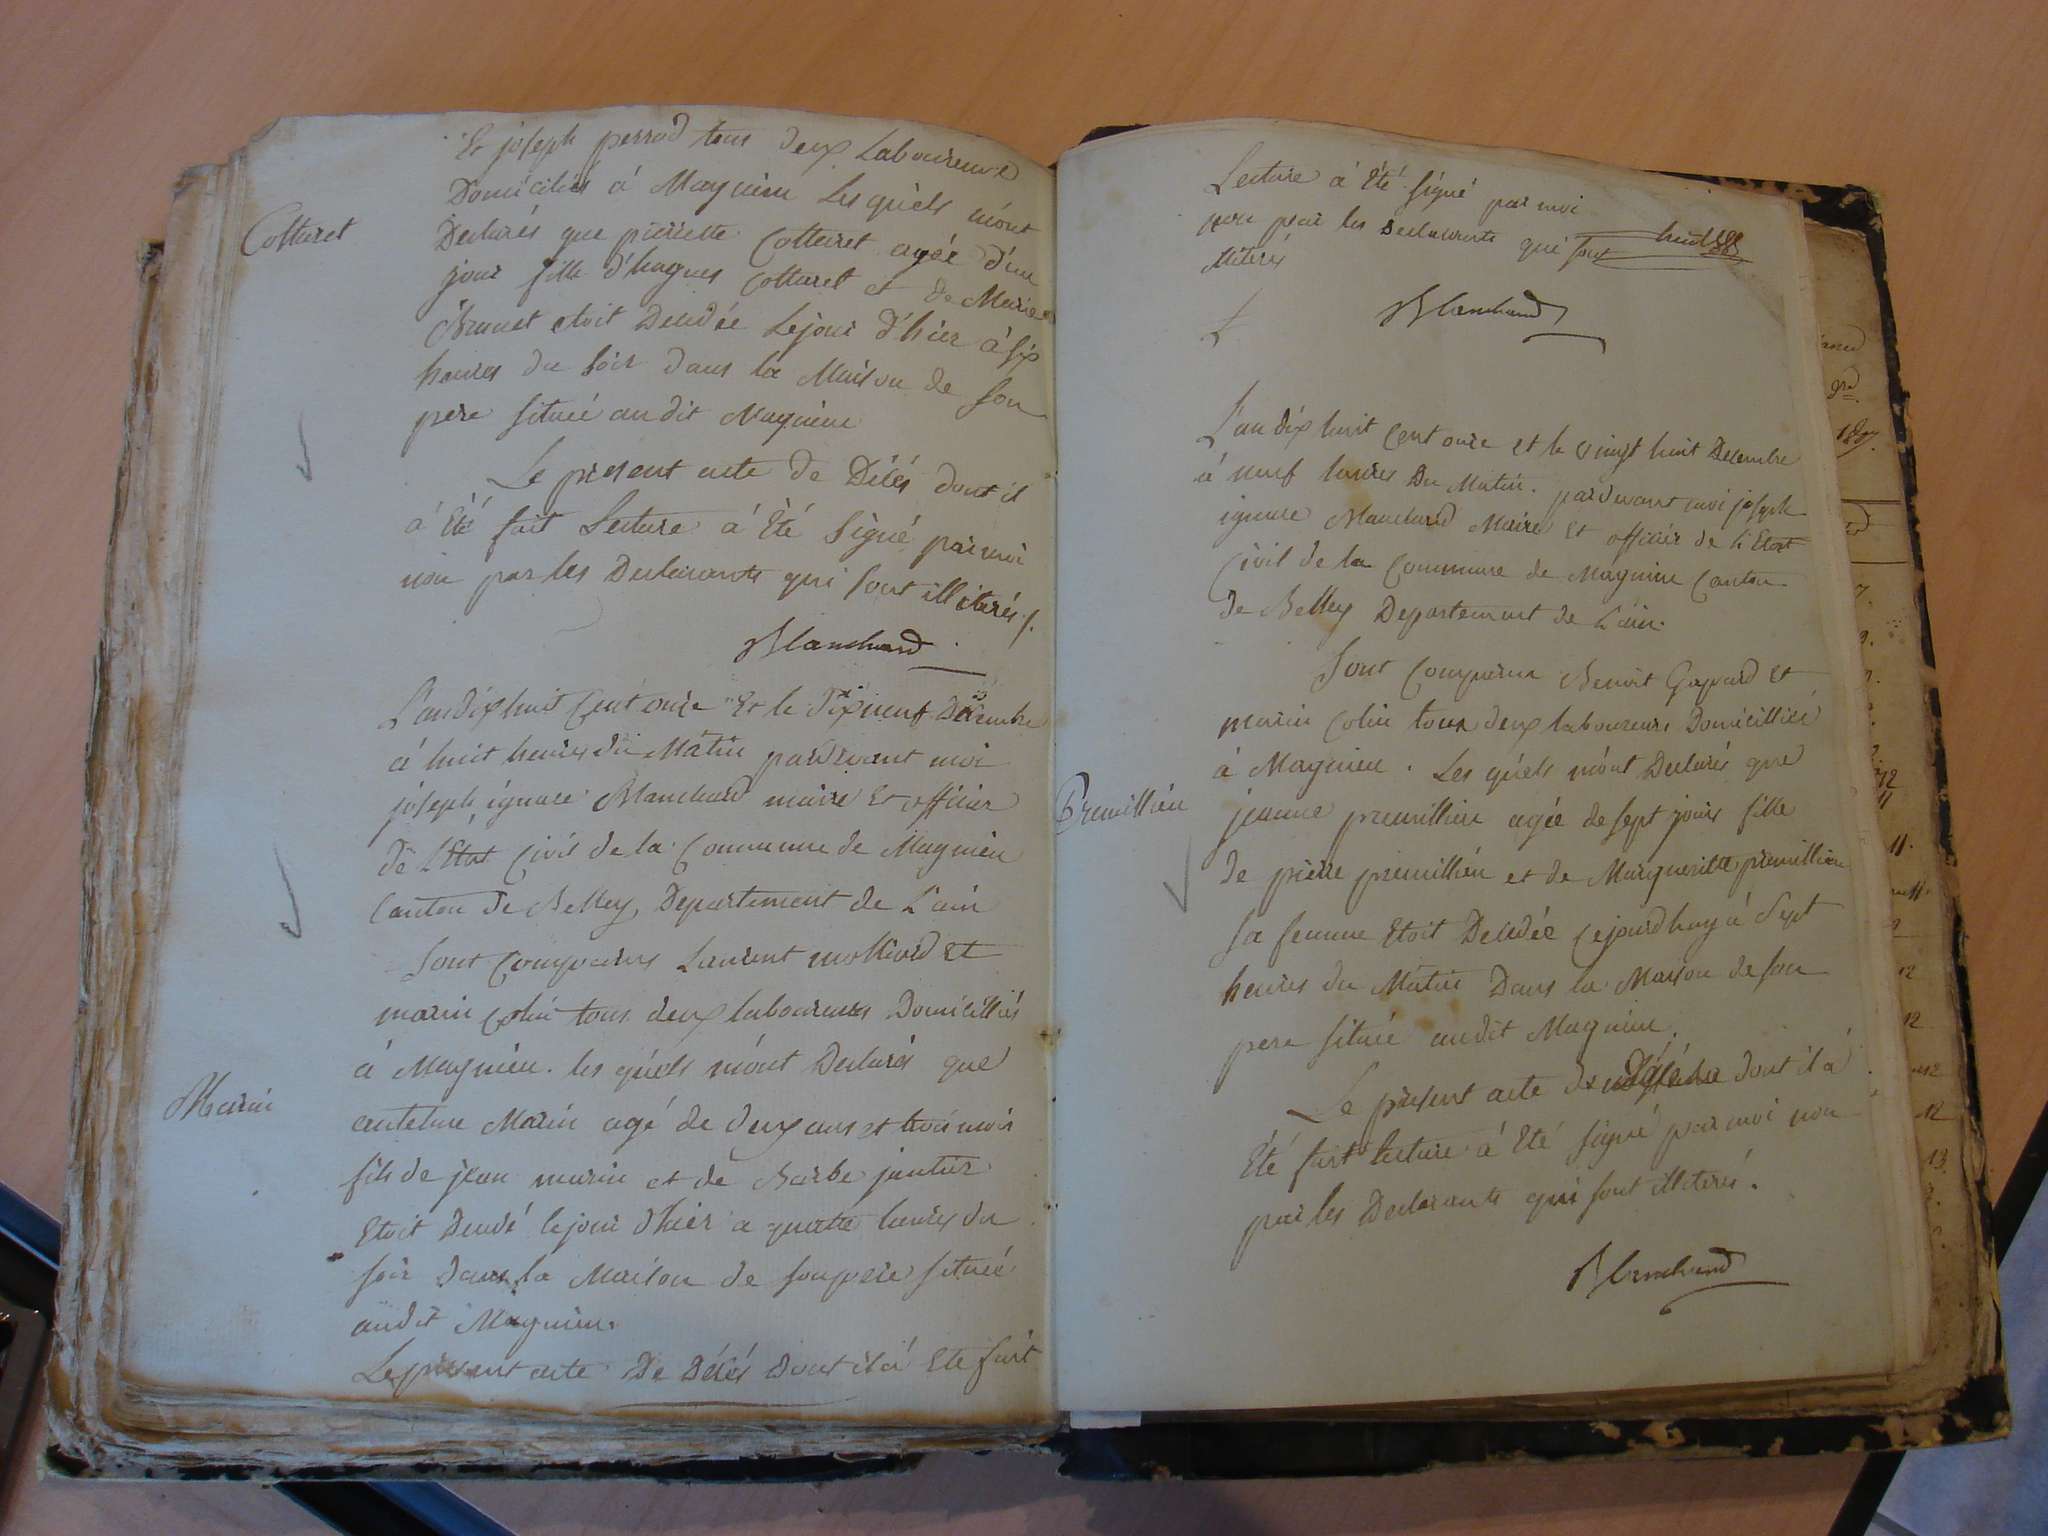 Et joseph perrod tous deux Laboureurs
Domicilies á Magnieu Les quels m'ont
Cotturet
Declarés que pierrette Cotturet agée d'un
jour fille d'hugues Cotturet et de Marie
Brunet etoit Decedée Lejour d'hier á six
heures du soir dans la Maison de son
pere située au dit Magnieu
Le present acte de Décés dont il
á Eté fait Lecture á Eté Signé par moi
non par les Declarants qui sont illiterés /.
Blanchard
L'an dix huit Cent onze Et le dix neuf Decembre
á huit heures du Matin pardevant moi
joseph ignace Blanchard maire Et officier
de L'Etat Civil de la Commune de Magnieu
Canton de Belley, Departement de L'ain
Sont Comparus Laurent mollard Et
marin Colin tous deux laboureurs Domicilliés
á Magnieu. les quels m'ont Declarés que
Marin
Marin agé de deux ans et trois mois
fils de jean marin et de Barbe
Etoit Decedé lejour d'hier a quatre heures du
soir Dans la Maison de son pere située
audit Magnieu.
Le present acte De Décés Dont il á Ete fait
Lecture á Eté signé par moi
non par les Declarants qui sont
illiterés
Blanchard
L'an dix huit Cent onze et le vingt huit Decembre
á neuf heures Du Matin. pardevant moi joseph
ignace Blanchard Maire Et officier de L'Etat
Civil de la Commune de Magnieu Canton
de Belley Departement de L'ain.
Sont Comparus Benoit Gaspard Et
marin Colin tous deux laboureurs Domicilliés
á Magnieu. Les quels m'ont Declarés que
Premillieu
jeanne premillieu agée de sept jours fille
de pierre premillieu et de Margueritte premillieu
sa femme Etoit Decedée Cejourdhuy á Sept
heures du Matin Dans la Maison de son
pere située audit Magnieu.
Le present acte de dont il á
Eté fait lecture á Eté signé par moi non
par les Declarants qui sont illiterés.
Blanchard